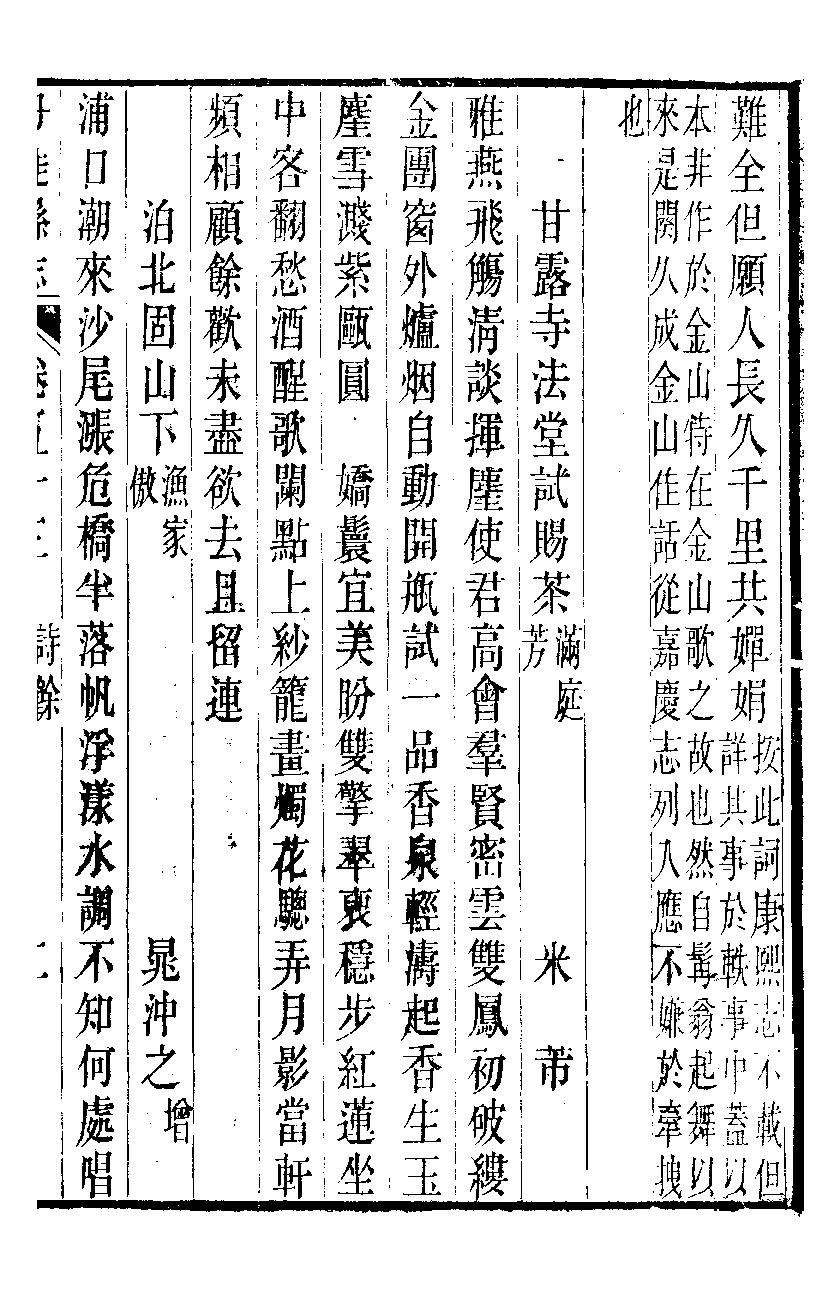 難全但願人長久千里共嬋娟按此詞康熙志不載但
詳其事於軼事中蓋以
本非作於金山特在金山歌之故也然自髯翁起舞以
來是闋久成金山佳話從嘉慶志列入應不嫌於牽拽
也
甘露寺法堂試賜茶滿庭芳 米芾
雅燕飛觴淸談揮麈使君高會羣賢密雲雙鳳初破縷
金團窗外爐烟自動開瓶試一品香泉輕濤起香生玉
塵雪濺紫甌圓 嬌鬟宜美盼雙擎翠袖穩步紅蓮坐
中客翻愁酒醒歌闌點上紗籠畫燭花驄弄月影當軒
頻相顧餘歡未盡欲去且留連
泊北固山下漁家傲 晁沖之增
浦口潮來沙尾漲危檣半落帆浮漾水調不知何處唱
卷五十三 詩餘